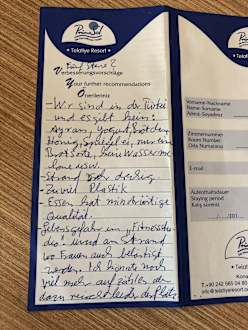 • Telatiye Resort •
Fünf Sterne?
Verbesserungsvorschläge
Your further recommendations
Önerileriniz
- Wir sind in der Türkei
und es gibt kein:
Ayran, Yogurt, Brötchen
Honig, Spiegelei, nur ein
Brotsorte, kein Wassermelone
usw.
- Strand sehr dreckig
- Zuviel Plastik
- Essen hat minderwertige
Qualität.
- Lebensgefahr im „Fitnessstudio" und am Strand
wo Frauen auch belästigt
werden. Ich könnte noch
viel mehr aufzählen aber
dazu reicht leider der Platz
Vorname-Nachname
Name-Surname
Adınız-Soyadınız
Zimmernummer
Room Number
Oda Numarası
E-mail
Aufenthaltsdauer
Staying period
Kalış süreniz
Kona
T.+90 242 565 04 80